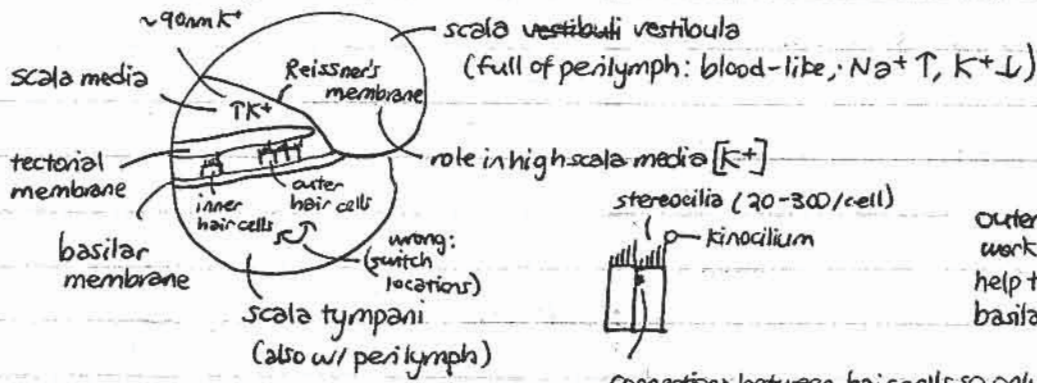 ~90mm K+
scala vestibuli vestibula
(full of perilymph: blood-like, Na+ ↑, K+ ↓)
scala media
Reissner's
membrane
↑K+
tectorial
membrane
role in high scala media [K+]
inner
hair cells
outer
hair cells
basilar
membrane
wrong:
(switch
locations)
scala tympani
(also w/ perilymph)
stereocilia (20-300/cell)
kinocilium
outer
work
help t
basila
connections between hair cells so only